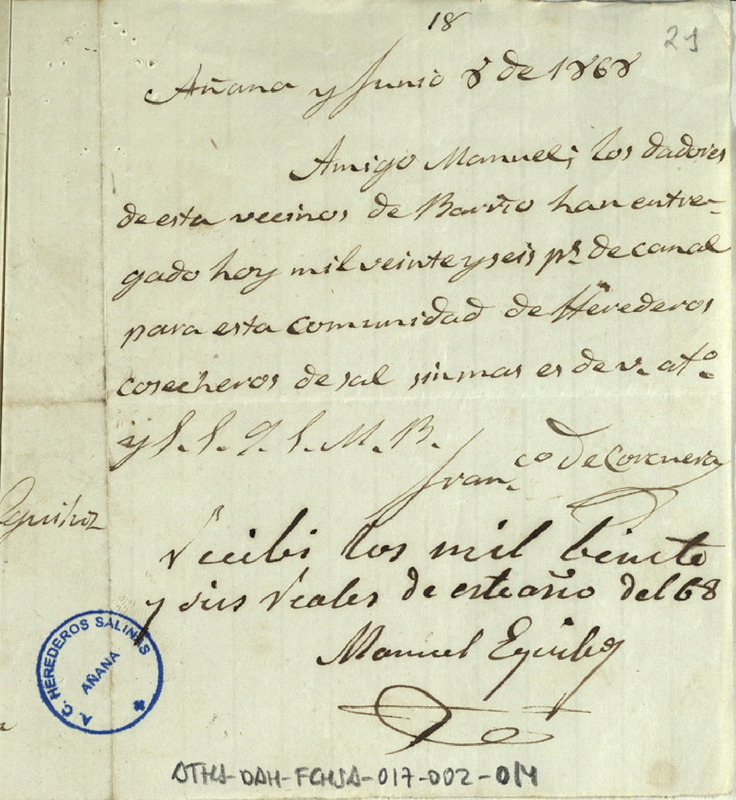 18
21
Añana y Junio 8 de 1868
Amigo Manuel; los dadores
de esta vecinos de Barrio han entre-
gado hoy mil veinte y seis p.s de canal
para esta comunidad de Herederos
cosecheros de sal sin mas es de v. at.o
y S. S. Q. S. M. B.
Fran.co de Corcuera
Recibi los mil beinte
y seis Reales de este año del 68
Manuel Eguiluz
Eguiluz
A. C. HEREDEROS SALINAS
AÑANA
ATHA-DAH-FCHSA-017-002-014